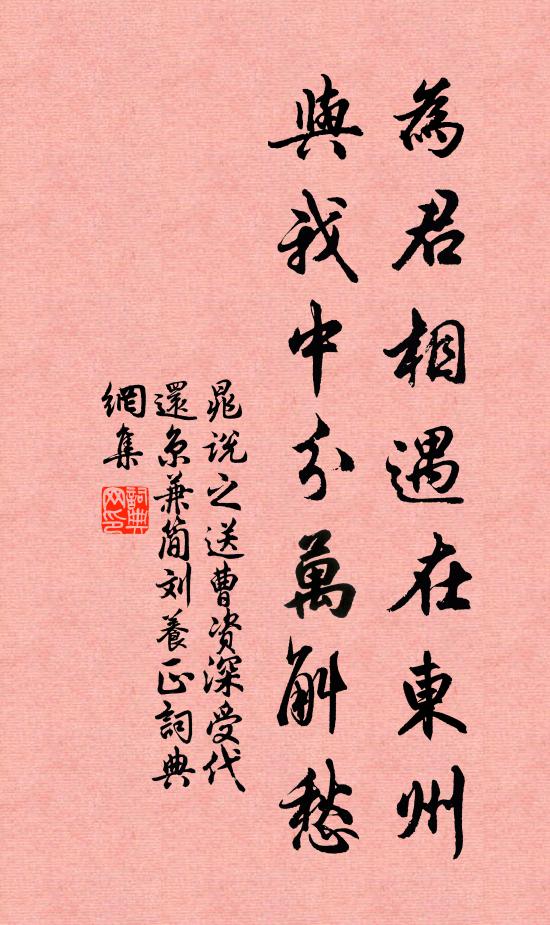 為君相遇在東州
與我中分萬斛愁
晁説之送曹资深受代
還京兼簡刘養正詞典
網集
詞典
网印